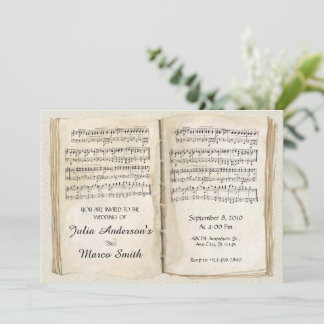 YOU ARE INVITED TO THE
WEDDING OF
Julia Anderson's
&
Marco Smith
September 8, 2010
At 4:00 Pm
Rsvp to +123 456 7890